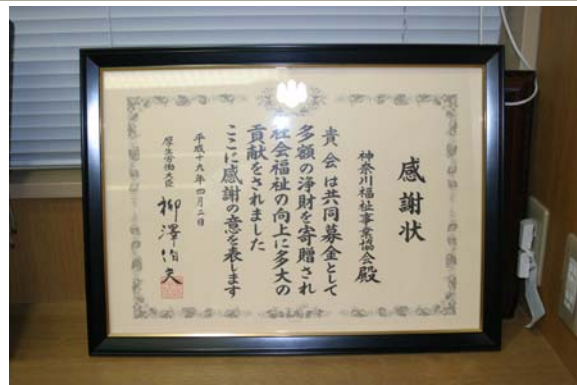 感謝状
神奈川福祉事業協会殿
貴会は共同募金として
多額の浄財を寄贈され
社会福祉の向上に多大の
貢献をされました
ここに感謝の意を表します
平成十九年四月二日
厚生労働大臣 柳澤伯夫